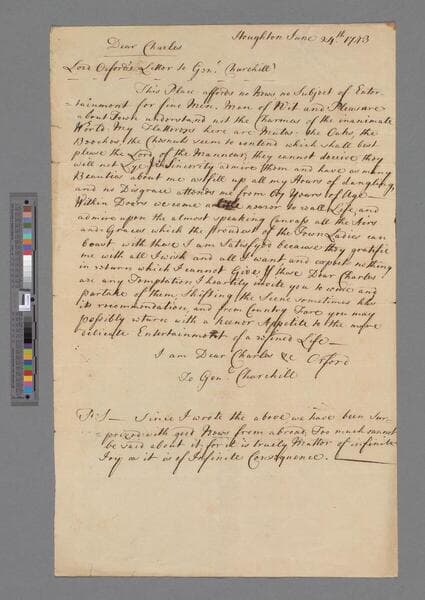 Houghton June 24th. 1743
Dear Charles
Lord Orford's Letter to Genl. Churchill
This Place affords no News no Subject of Enter
=tainment for fine Men. Men of Wit and Pleasure
about Town understand not the Charmes of the inanimate
World. My Flatterers here are Mutes. the Oaks, the
Beeches, the Chesnuts seem to contend which shall best
please the Lord of the Mannour, they cannot deceive they
will not Lye. I in Sincerity admire them and have as many
Beauties about me as fill up all my Hours of dangling,
and no Disgrace attends me from 67 Years of Age
Within Doors we come a little nearer to reall Life, and
admire upon the almost speaking Canvass all the Airs
and Graces which the proudest of the Town Ladies can
boast with these I am Satisfyed because they gratifie
me with all I wish and all I want and expect nothing
in return which I cannot Give If these Dear Charles
are any Temptations I heartily invite you to come and
partake of them Shifting the Scene sometimes has
its recommendation, and from Country Fare you may
possibly return with a keener Appetite to the more
delicate Entertainment of a refined Life—
I am Dear Charles &c Orford
To Genl. Churchill
P:S— Since I wrote the above we have been Sur-
=prized with good News from abroad, Too much cannot
be said about it, for it is truely Matter of infinite
Joy as it is of Infinite Consequence.